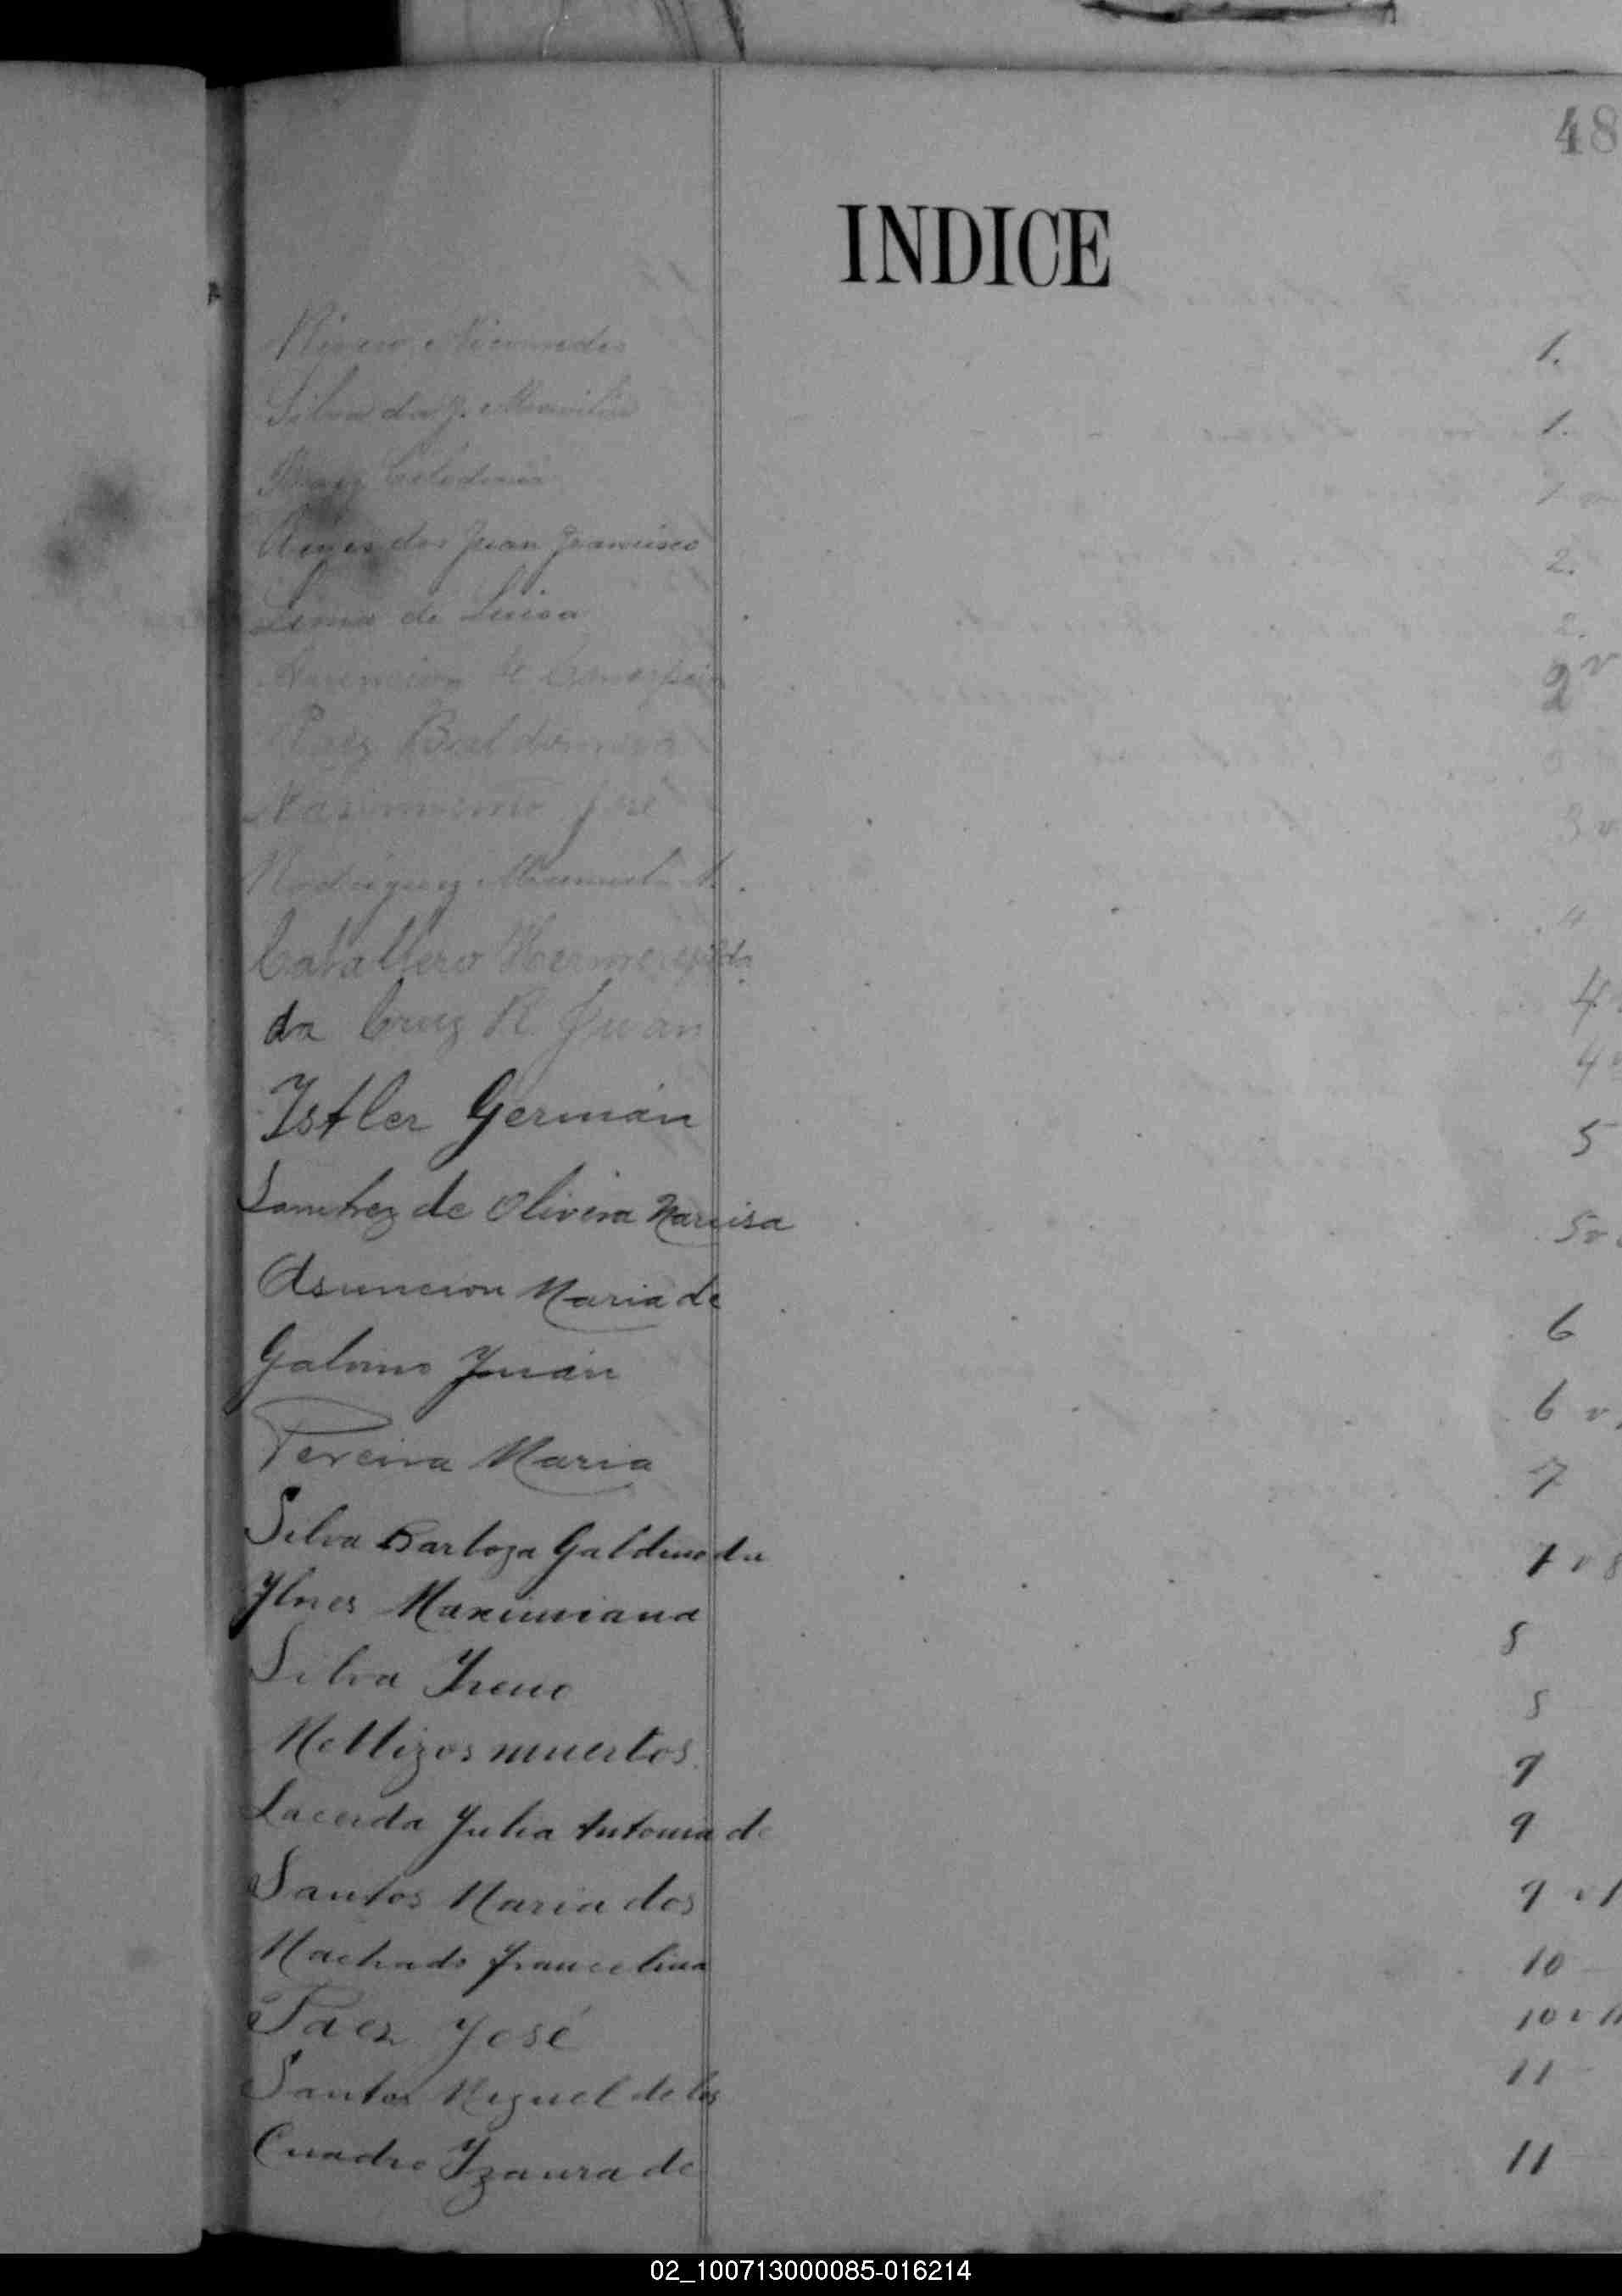 48
INDICE
Rivero Nicomedes 1.
Silva da J. 1.
Baez Celedonia 1
Reyes dos Juan Francisco 2.
Lima de Luisa 2.
Asuncion de 2 v
Paez Baldomera
Nasimiento José 3 v
Rodriguez Manuela A. 4
Caballero Hermeregilda 4
da Cruz R. Juan 4
Istler Germán 5
Sanchez de Olivera Narcisa 5 v
Asuncion Maria de 6
Galvino Juan 6 v
Pereira Maria 7
Silva Barboza Galdino da
Ylnes Maximiana 8
Silva Yreno 8
Mellizos muertos 9
Lacerda Julia Antonia de 9
Santos Maria dos 9 v
Machado Francelina 10
Paez José 10 v
Santos Miguel de los 11
Cuadro Yzaura de 11
02_100713000085-016214